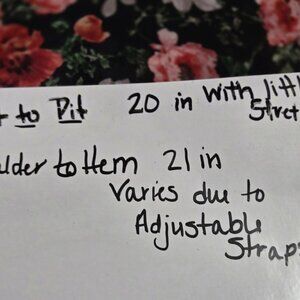 to Pit 20 in With littl
Stret
ulder to Hem 21 in
Varies due to
Adjustable
Straps